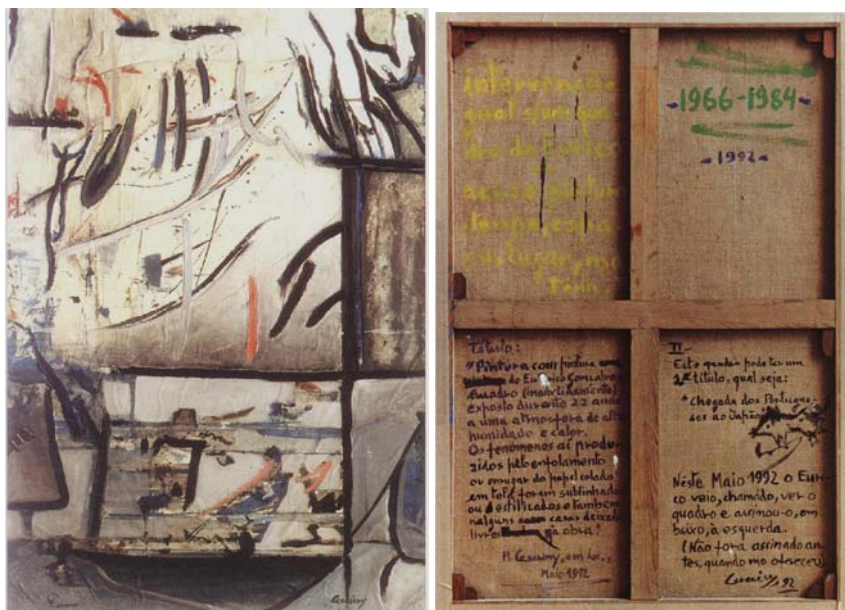 Cesariny
intervenção
qual s/um qua-
dro de Eurico
acaso, pintura
tempo, espa-
ço, lugar, ma
téria.
-1966-1984-
-1992-
Título:
"Pintura com pintura
de Eurico Gonçalves
Quadro (inadvertidamente)
exposto durante 22 anos
a uma atmosfera de alta
humidade e calor.
Os fenómenos aí produ-
zidos pelo enfolamento
or enrugar do papel colado
em tela foram sublinhados
ou destilizados e também
nalguns casos deixados
livres na obra."
M. Cesariny,
Maio 1992
II-
Este quadro pode ter um
2º título, qual seja:
"Chegada dos Portugue-
ses ao Japão
Néste Maio 1992 o Euri-
co veio, chamado, ver o
quadro e assinou-o, em
baixo, à esquerda.
(Não fora assinado an-
tes, quando mo ofereceu)
Cesariny, 92